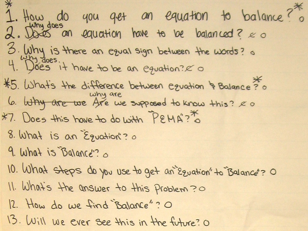 * 1. How do you get an equation to balance? *
why does
2. Does an equation have to be balanced? c o
3. Why is there an equal sign between the words? o
why does
4. Does it have to be an equation? c o
*5. What's the difference between equation & Balance? *
why are
6. Why are we Are we supposed to know this? c o
*7. Does this have to do with "PEMA"? *
8. What is an "Equation"? o
9. What is "Balance"? o
10. What steps do you use to get an "Equation" to "Balance"? O
11. What's the answer to this Problem? O
12. How do we find "Balance"? O
13. Will we ever see this in the future? O